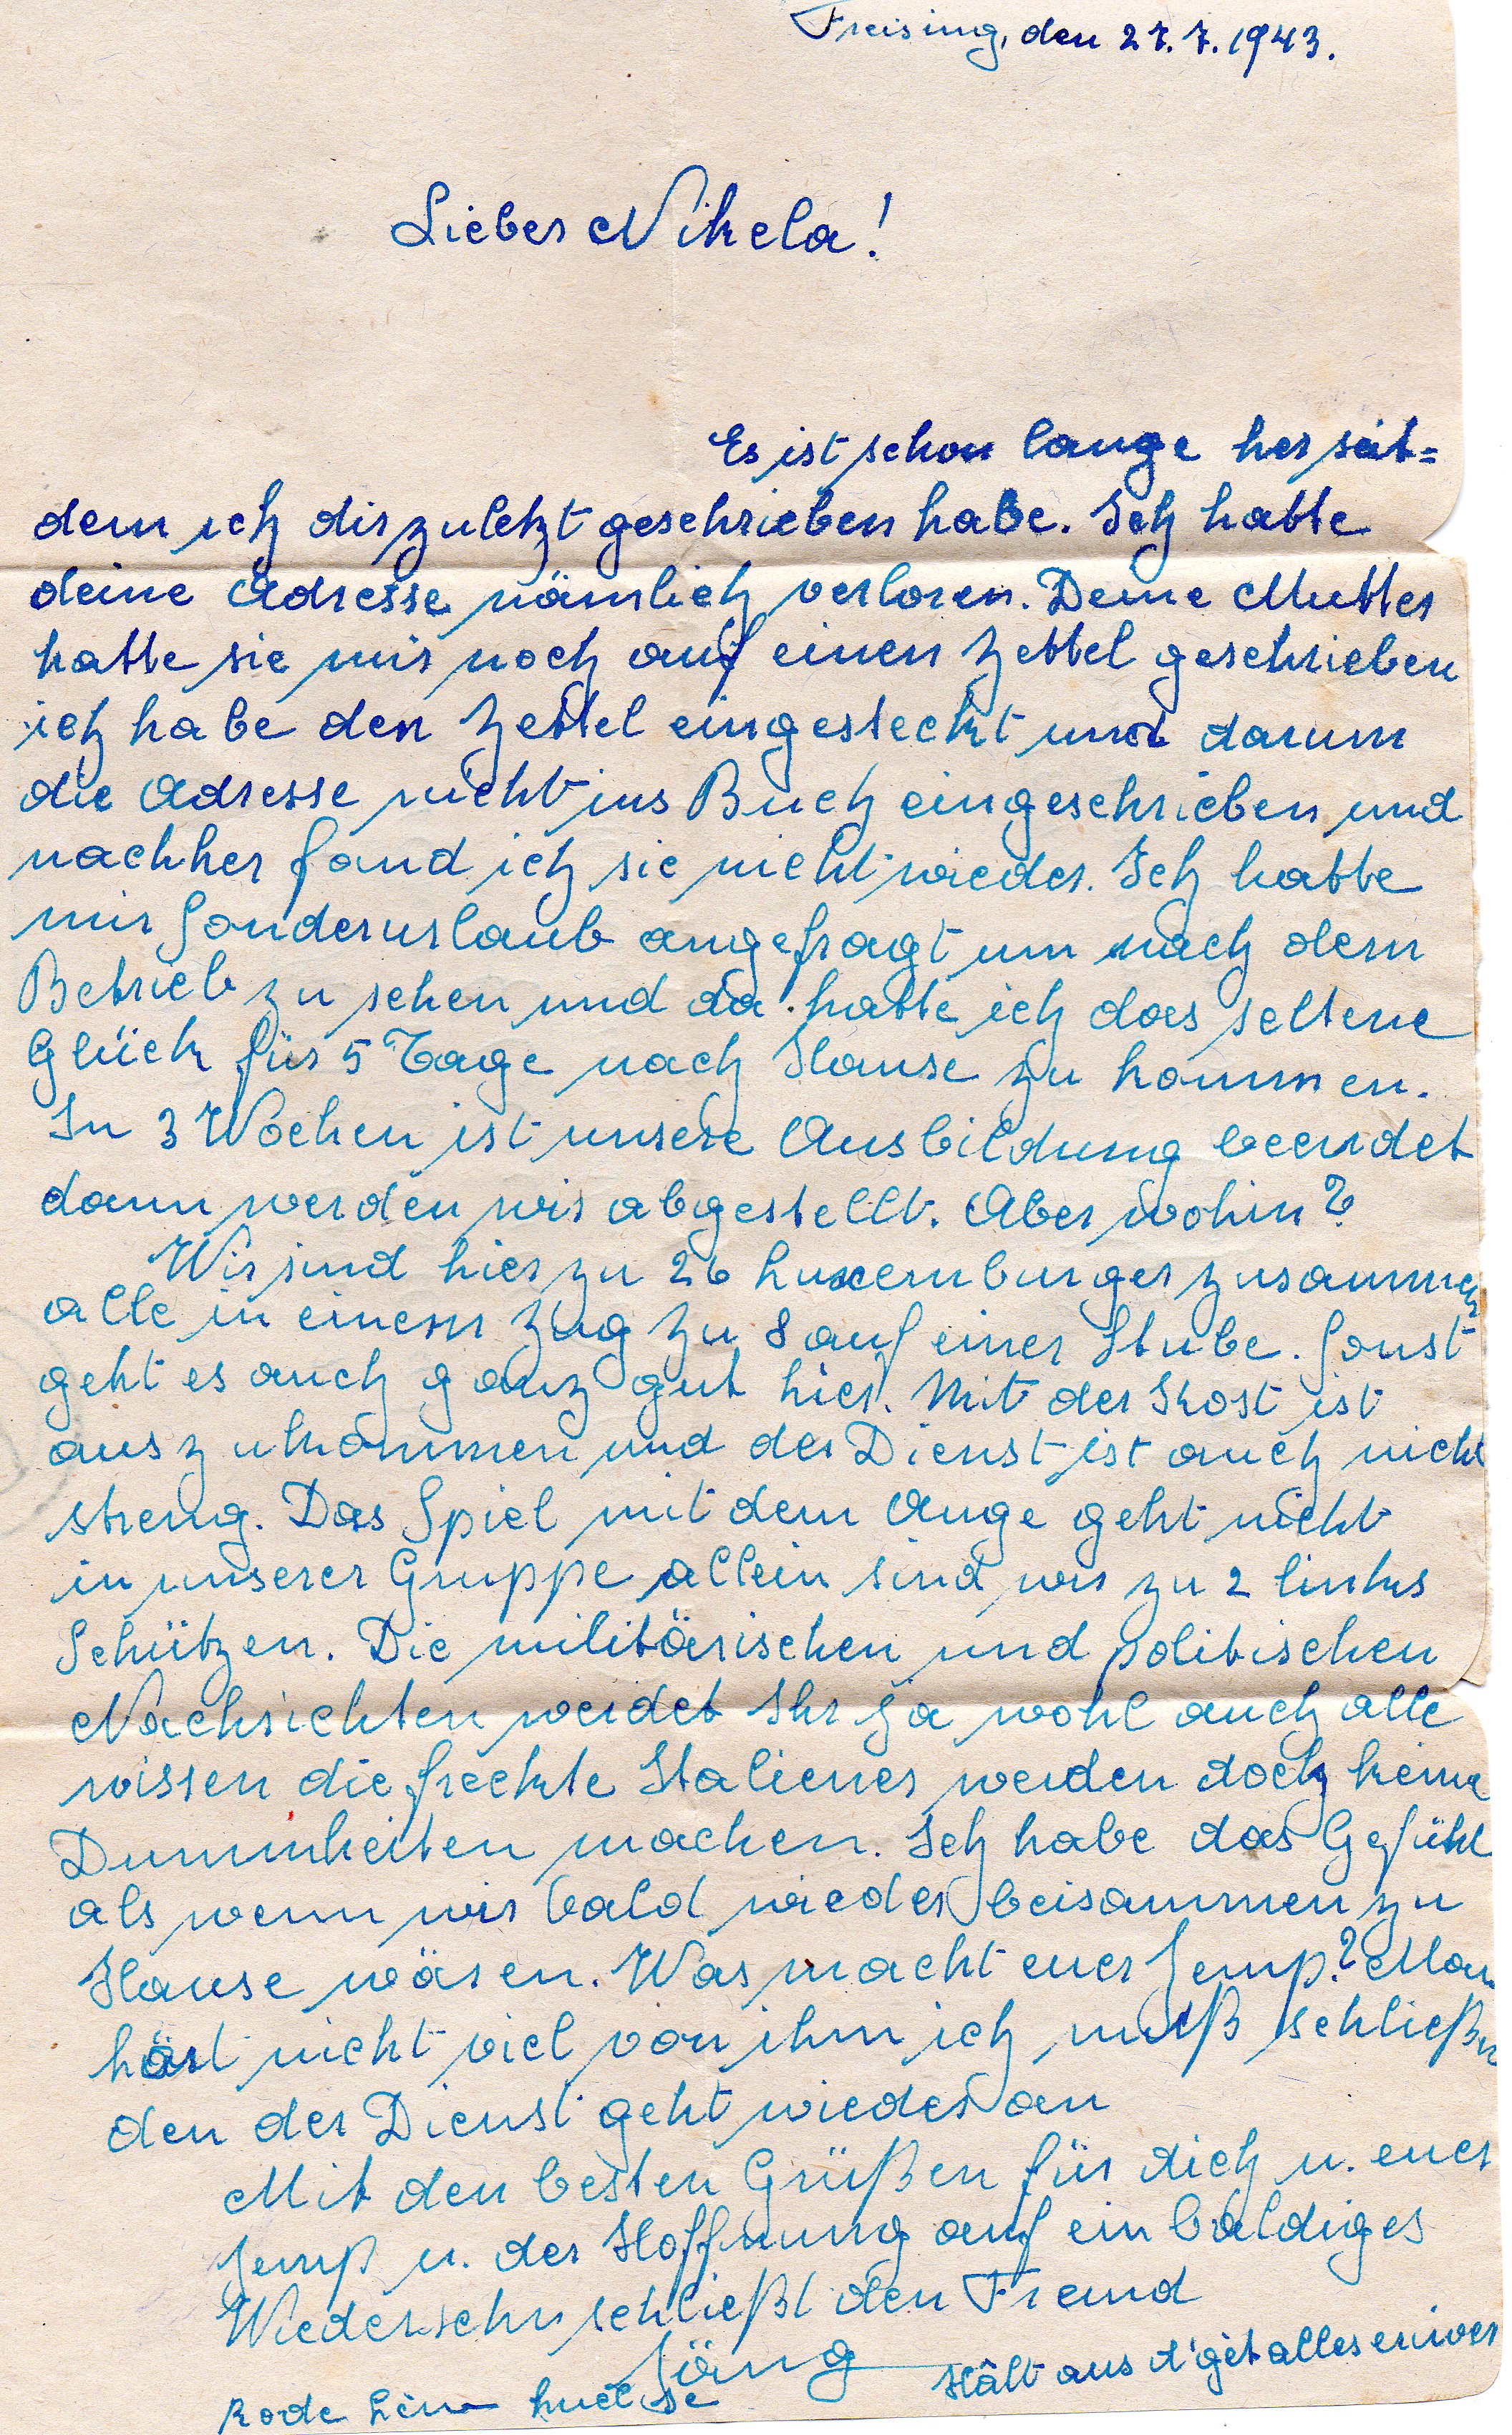 Freising, den 27.7.1943.
Lieber Nikela!
Es ist schon lange her seit=
dem ich dir zuletzt geschrieben habe. Ich hatte
deine Adresse nämlich verloren. Deine Mutter
hatte sie mir noch auf einen Zettel geschrieben
ich habe den Zettel eingesteckt und darum
die Adresse nicht ins Buch eingeschrieben und
nachher fand ich sie nicht wieder. Ich hatte
mir Sonderurlaub angefragt um nach dem
Betrieb zu sehen und da hatte ich das seltene
Glück für 5 Tage nach Hause zu kommen.
In 3 Wochen ist unsere Ausbildung beendet
dann werden wir abgestellt. Aber wohin?
Wir sind hier zu 26 Luxemburger zusammen
alle in einem Zug zu 8 auf einer Stube. Sonst
geht es auch ganz gut hier. Mit der Kost ist
auszukommen und der Dienst ist auch nicht
streng. Das Spiel mit dem Auge geht nicht
in unserer Gruppe allein sind wir zu 2 links
Schützen. Die militärischen und politischen
Nachrichten werdet Ihr ja wohl auch alle
wissen die freckte Italiener werden doch keine
Dummheiten machen. Ich habe das Gefühl
als wenn wir bald wieder beisammen zu
Hause wären. Was macht euer Jemp? Man
hört nicht viel von ihm ich muß schließen
den der Dienst geht wieder an
Mit den besten Grüßen für dich u. euer
Jemp u. der Hoffnung auf ein baldiges
Wiedersehn schließt den Freund
Jäng
Hâlt aus d'gêt alles eriwer
Rode